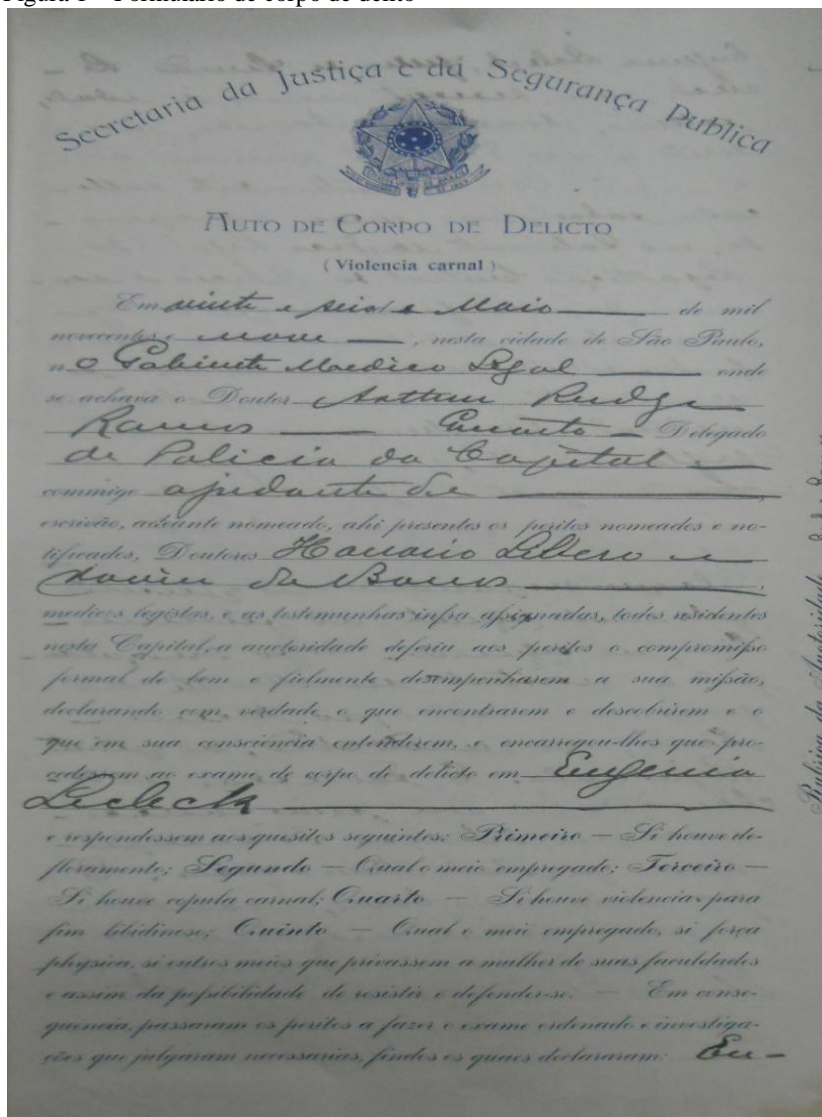 Figura 1 – Formulário de corpo de delito
Secretaria da Justiça e da Segurança Publica
AUTO DE CORPO DE DELICTO
(Violencia carnal)
Em vinte e seis de Maio de mil
novecentos e nove, nesta cidade de São Paulo,
n o Gabinete Medico Legal onde
se achava o Doutor Arthur Rudge
Ramos Quarto Delegado
de Policia da Capital
commigo ajudante de
escrivão, adeante nomeado, ahi presentes os peritos nomeados e no-
tificados, Doutores Honorio Libero e
Xavier de Barros,
medicos legistas, e as testemunhas infra assignadas, todos residentes
nesta Capital, a auctoridade deferiu aos peritos o compromisso
formal de bem e fielmente desempenharem a sua missão,
declarando com verdade o que encontrarem e descobrirem e o
que em sua consciencia entenderem, e encarregou-lhes que pro-
cedessem ao exame de corpo de delicto em Eugenia
e respondessem aos quesitos seguintes: Primeiro — Si houve de-
floramento; Segundo — Qual o meio empregado; Terceiro —
Si houve copula carnal; Quarto — Si houve violencia para
fim libidinoso; Quinto — Qual o meio empregado, si força
physica, si outros meios que privassem a mulher de suas faculdades
e assim da possibilidade de resistir e defender-se. — Em conse-
quencia, passaram os peritos a fazer o exame ordenado e investiga-
ções que julgaram necessarias, findos os quaes declararam: Eu-
Rubrica da Auctoridade